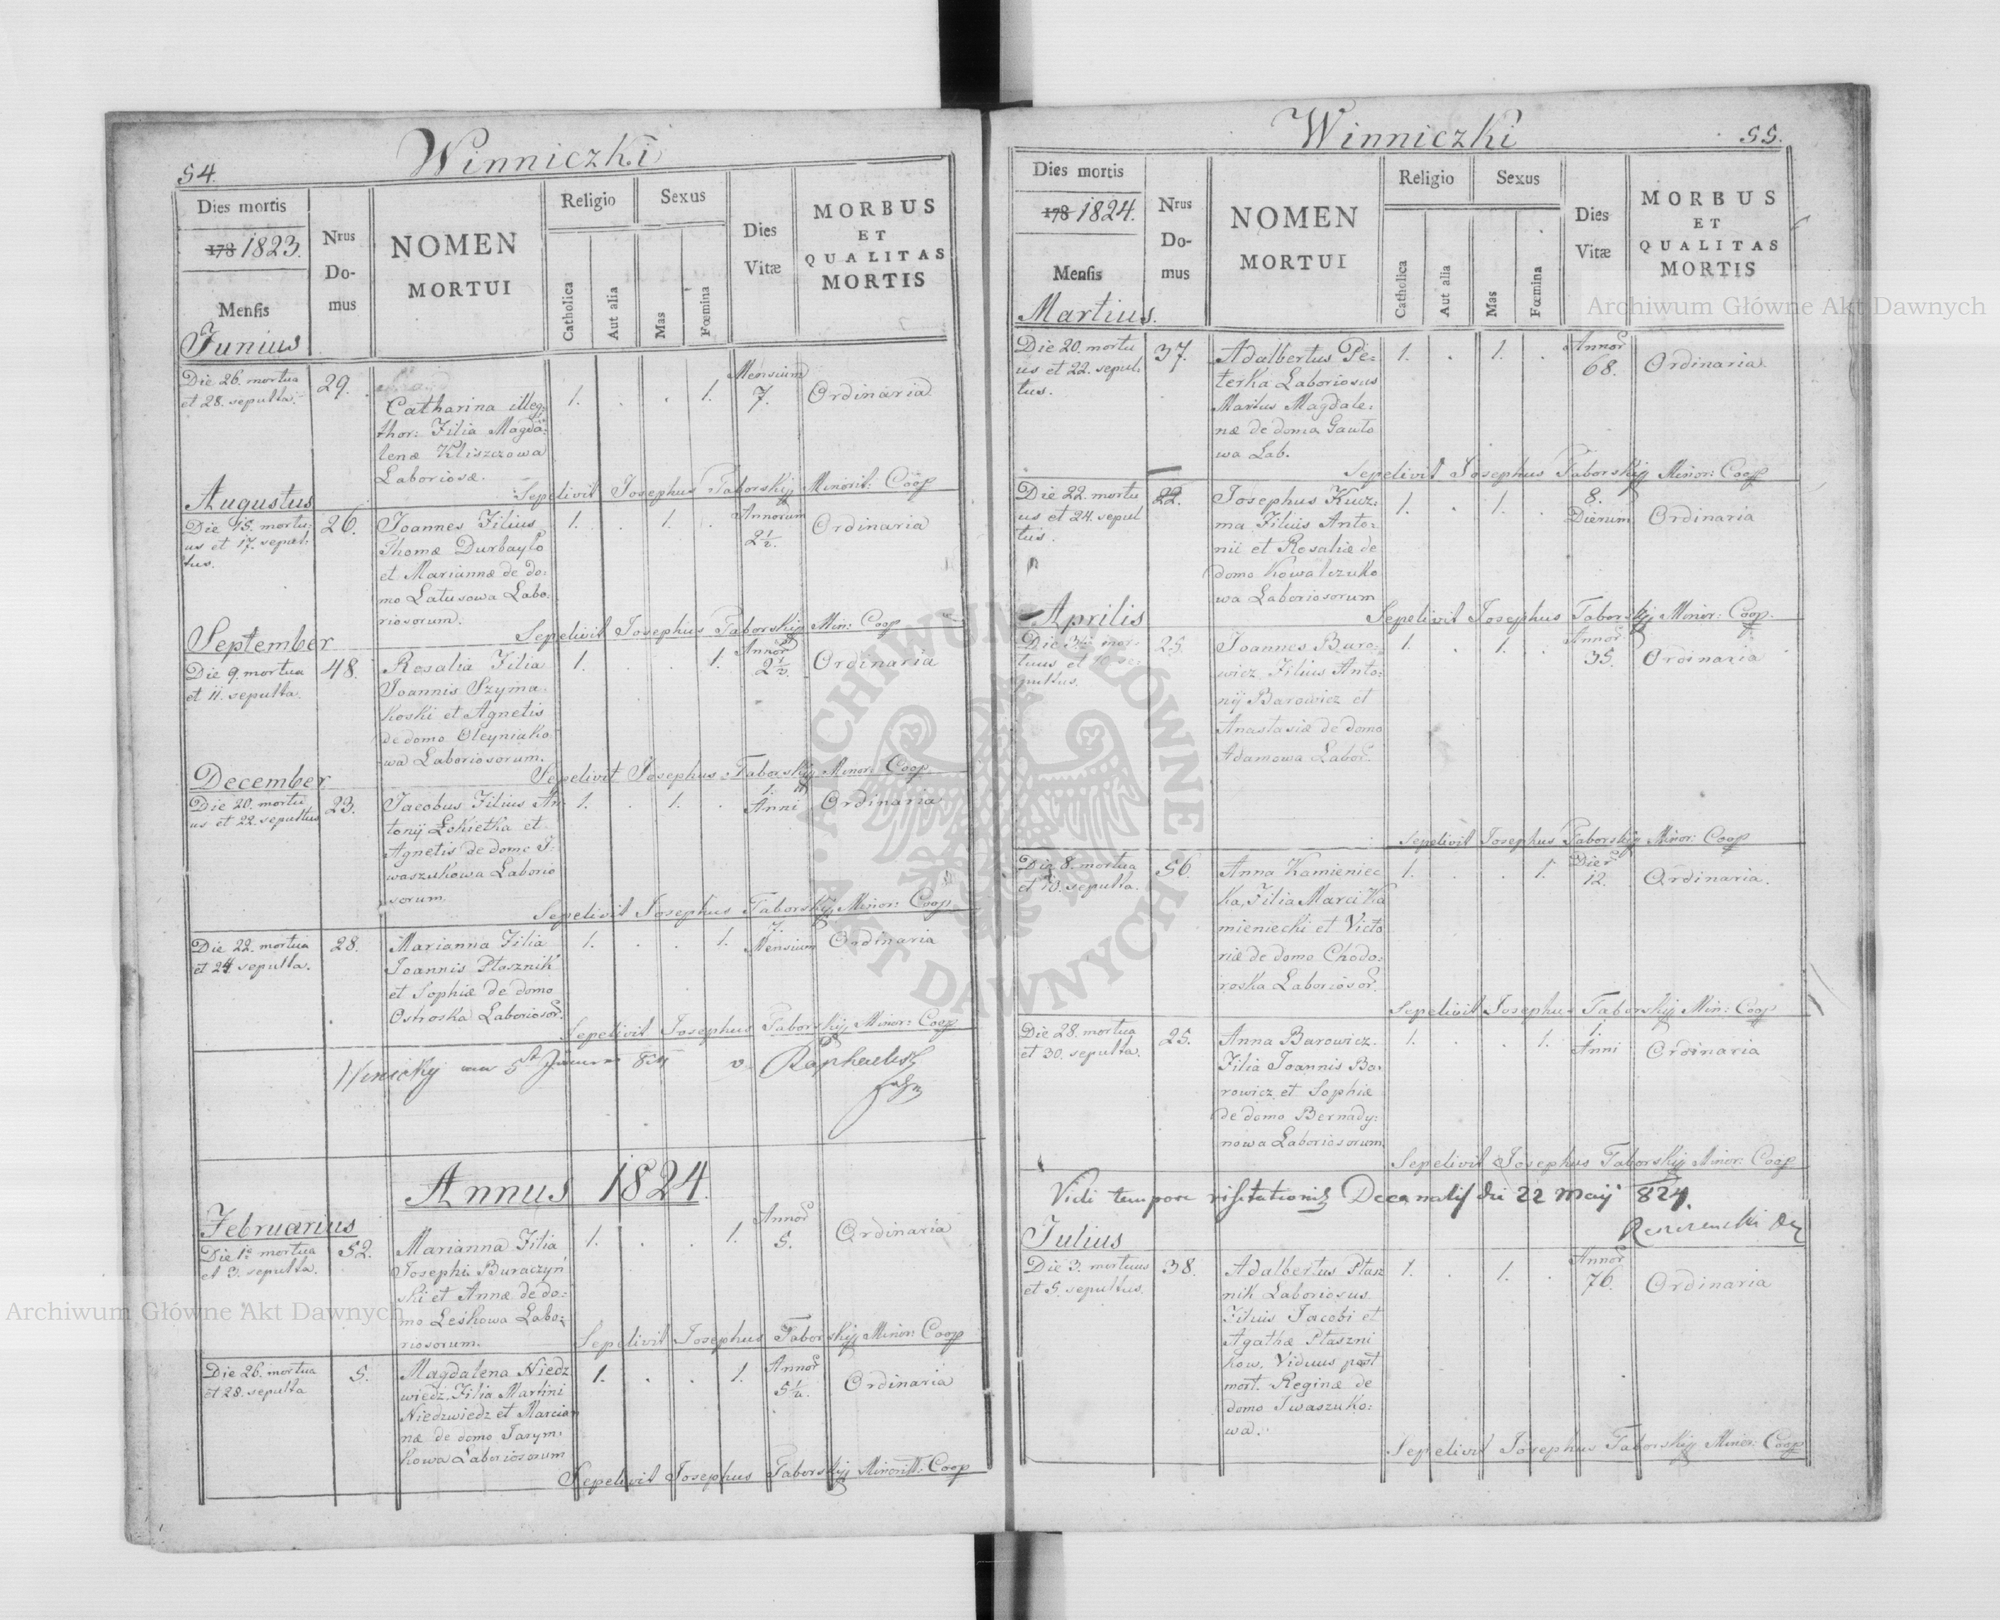 54.
Winniczki
Dies mortis
178 1823.
Mensis
Junius
Nrus
Do-
mus
NOMEN
MORTUI
Religio
Catholica
Aut alia
Sexus
Mas
Fœmina
Dies
Vitæ
MORBUS
ET
QUALITAS
MORTIS
Die 26. mortua
et 28. sepulta.
29.
Catharina illeg.
thor: Filia Magda-
lenæ Kliszczowa
Laboriosæ.
1. . . 1.
Mensium
7.
Ordinaria
Sepelivit Josephus Taborskij Minorit: Coop
Augustus
Die 15. mortu-
us et 17. sepul-
tus.
26.
Joannes Filius
Thomæ Durbayło
et Mariannæ de do-
mo Latusowa Labo-
riosorum.
1. . 1. .
Annorum
2½.
Ordinaria
Sepelivit Josephus Taborskij Min: Coop
September
Die 9. mortua
et 11. sepulta.
48.
Rosalia Filia
Joannis Szyma-
koski et Agnetis
de domo Oleyniako
wa Laboriosorum.
1. . . 1.
Annor
2½.
Ordinaria
Sepelivit Josephus Taborskij Minor: Coop
December
Die 20. mortu
us et 22. sepultus
23.
Jacobus Filius An
tonij Łokietka et
Agnetis de domo I-
waszukowa Laborio
sorum.
1. . 1. .
1.
Anni
Ordinaria
Sepelivit Josephus Taborskij Minor: Coop
Die 22. mortua
et 24 sepulta.
28.
Marianna Filia
Joannis Ptasznik
et Sophiæ de domo
Ostroska Laboriosor.
1. . . 1.
7.
Mensium
Ordinaria
Sepelivit Josephus Taborskij Minor: Coop
Annus 1824.
Februarius
Die 1. mortua
et 3. sepulta.
52.
Marianna Filia
Josephi Buraczyń
ski et Annæ de do-
mo Leskowa Labo-
riosorum.
1. . . 1.
Annor
5.
Ordinaria
Sepelivit Josephus Taborskij Minor: Coop
Die 26. mortua
et 28. sepulta
5.
Magdalena Niedz
wiedz. Filia Martini
Niedzwiedz et Marcian
næ de domo Jarym-
kowa Laboriosorum
1. . . 1.
Annor
Ordinaria
Sepelivit Josephus Taborskij Minorit: Coop
Winniczki
55.
Dies mortis
178 1824.
Mensis
Martius.
Nrus
Do-
mus
NOMEN
MORTUI
Religio
Catholica
Aut alia
Sexus
Mas
Fœmina
Dies
Vitæ
MORBUS
ET
QUALITAS
MORTIS
Die 20. mortu
us et 22. sepul-
tus.
37.
Adalbertus Pe-
terka Laboriosus
Maritus Magdale-
næ de domo Gawło
wa Lab.
1. . 1. .
Annor
68.
Ordinaria
Sepelivit Josephus Taborskij Minor: Coop
Die 22. mortu
us et 24. sepul
tus.
22.
Josephus Kuz-
ma Filius Anto-
nii et Rosaliæ de
domo Kowalczuko
wa Laboriosorum
1. . 1. .
8.
Dierum
Ordinaria
Sepelivit Josephus Taborskij Minor: Coop.
Aprilis
25.
Joannes Buro-
wicz, Filius Anto-
nij Barowicz et
Anastasiæ de domo
Adamowa Labor.
1. . 1. .
Annor
35.
Ordinaria
Sepelivit Josephus Taborskij Minor: Coop
Die 8. mortua
et 10. sepulta.
56.
Anna Kamieniec
ka, Filia Marci Ka
mieniecki et Victo
riæ de domo Chodo-
roska Laboriosor.
1. . . 1.
Dier
12.
Ordinaria.
Sepelivit Josephus Taborskij Min: Coop
Die 28. mortua
et 30. sepulta.
25.
Anna Barowicz.
Filia Joannis Ba-
rowicz et Sophiæ
de domo Bernady-
nowa Laboriosorum
1. . . 1.
1.
Anni
Ordinaria
Sepelivit Josephus Taborskij Minor: Coop
Vidi tempore visitationis Decanalis die 22 Maij 824.
Julius
Die 3. mortuus
et 5. sepultus.
38.
Adalbertus Ptasz
nik Laboriosus
Filius Jacobi et
Agathæ Ptaszni
kow, Viduus post
mort. Reginæ de
domo Iwaszuko-
wa.
1. . 1. .
Annor
76.
Ordinaria
Sepelivit Josephus Taborskij Minor: Coop
Archiwum Główne Akt Dawnych
Archiwum Główne Akt Dawnych
ARCHIWUM GŁÓWNE
AKT DAWNYCH